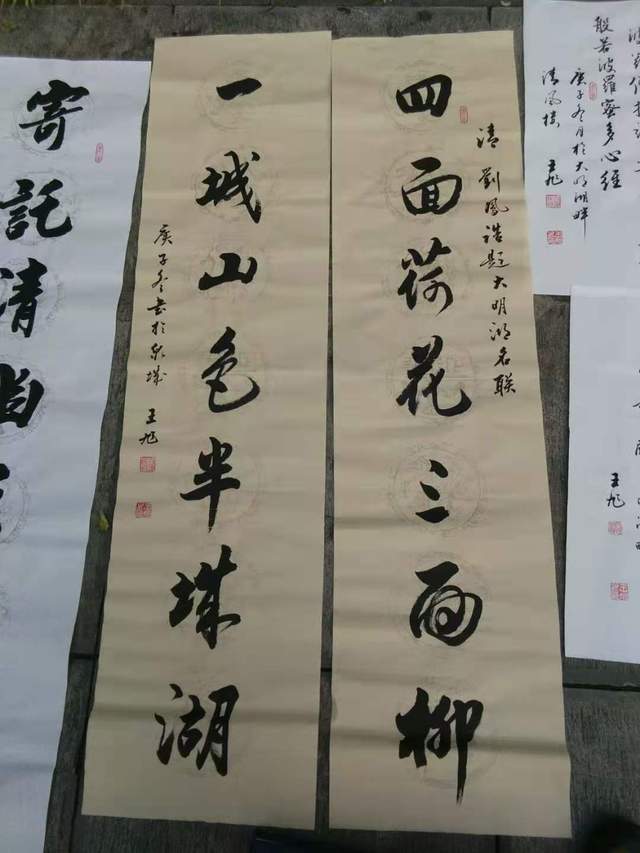 般若波羅蜜多心經
庚子冬月於大明湖畔
清風樓 王旭
王旭
清 劉鳳誥題大明湖名聯
四面荷花三面柳
一城山色半城湖
庚子冬書於泉城 王旭
寄託清